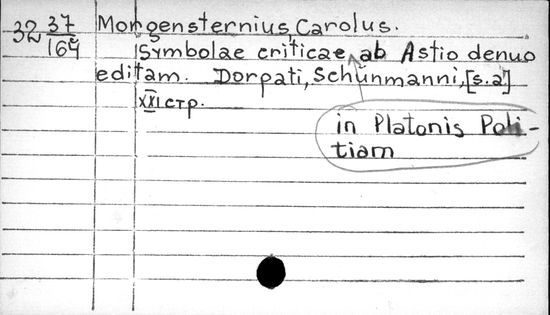 32 37/164 Morgensternius, Carolus.
Symbolae criticae ab Astio denuo
editam. Dorpati, Schünmanni, [s.a]
XXI стр.
in Platonis Poli-
tiam